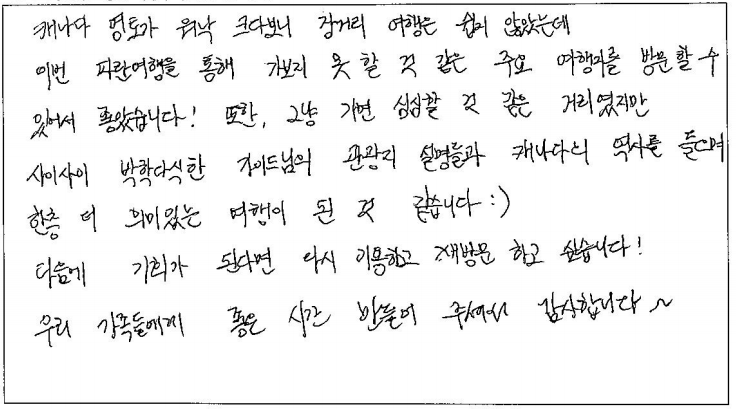 캐나다 영토가 워낙 크다보니 장거리 여행은 쉽지 않았는데
이번 파란여행을 통해 가보지 못 할 것 같은 주요 여행지를 방문할 수
있어서 좋았습니다! 또한, 그냥 가면 심심할 것 같은 거리였지만
사이사이 박학다식한 가이드님의 관광지 설명들과 캐나다의 역사를 들으며
한층 더 의미있는 여행이 된 것 같습니다 :)
다음에 기회가 된다면 다시 이용하고 재방문 하고 싶습니다!
우리 가족들에게 좋은 시간 만들어 주셔서 감사합니다~